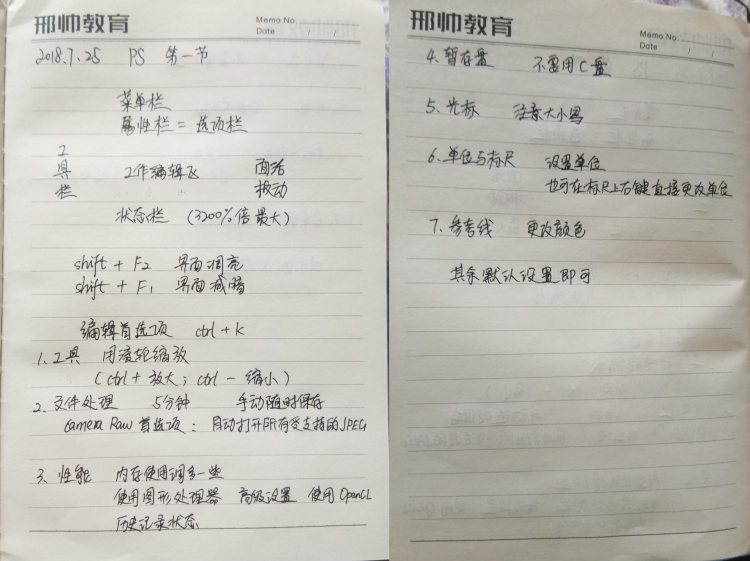 邢帅教育
Memo No.
Date / /
2018.7.25 PS 第一节
菜单栏
属性栏 = 选项栏
工具栏 工作编辑区 面活
板动
状态栏 (3200%倍最大)
shift + F2 界面调亮
shift + F1 界面减暗
编辑首选项 ctrl + K
1. 工具 用滚轮缩放
(ctrl + 放大; ctrl - 缩小)
2. 文件处理 5分钟 手动随时保存
Camera Raw 首选项: 自动打开所有受支持的JPEG
3. 性能 内存使用调多一些
使用图形处理器 高级设置 使用OpenCL
历史记录状态
邢帅教育
Memo No.
Date / /
4. 暂存盘 不要用C盘
5. 光标 注意大小写
6. 单位与标尺 设置单位
也可在标尺上右键直接更改单位
7. 参考线 更改颜色
其余默认设置即可